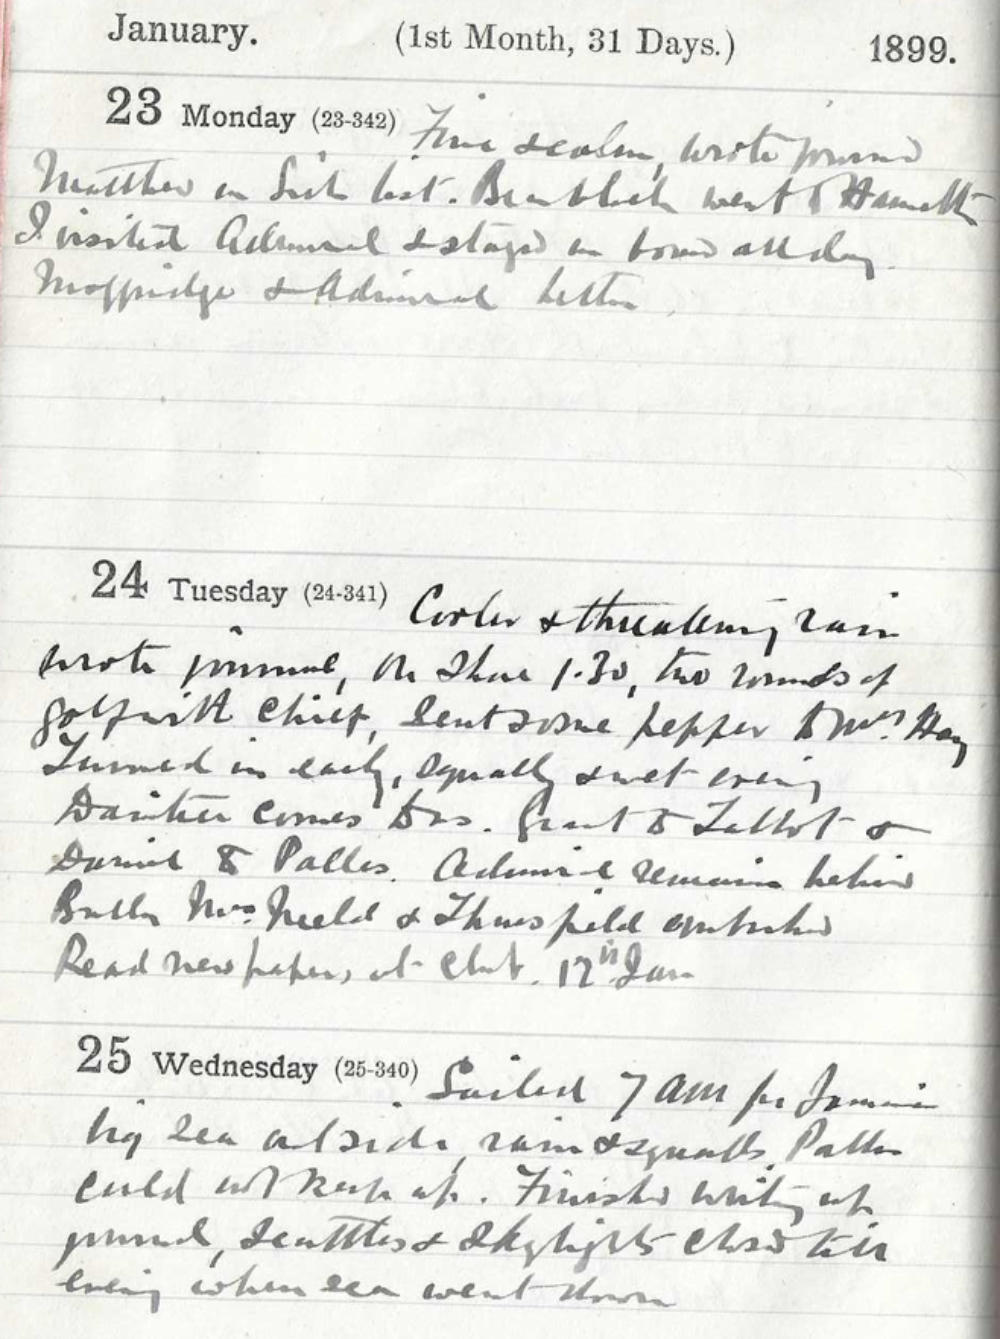 January. (1st Month, 31 Days.) 1899.
23 Monday (23-342) Fine & calm, wrote journal
Matthew on Sick list. Went to Hamilton
I visited Admiral & stayed on board all day.
Moggridge & Admiral better
24 Tuesday (24-341) Cooler & threatening rain
wrote journal, On Shore 1.30, two rounds of
golf with Chief, Sent some pepper to Mrs. Hay
Turned in early, squally & wet evening
comes to us. Grant to Talbot &
Daniel to Pallas. Admiral remains behind
Butler Mrs Neeld & Thursfield embarked
Read newspapers at Club. 17th Jan
25 Wednesday (25-340) Sailed 7 AM for Jamaica
big sea outside, rain & squalls, Pallas
could not keep up. Finished writing up
journal, Scuttles & Skylights closed till
evening when sea went down